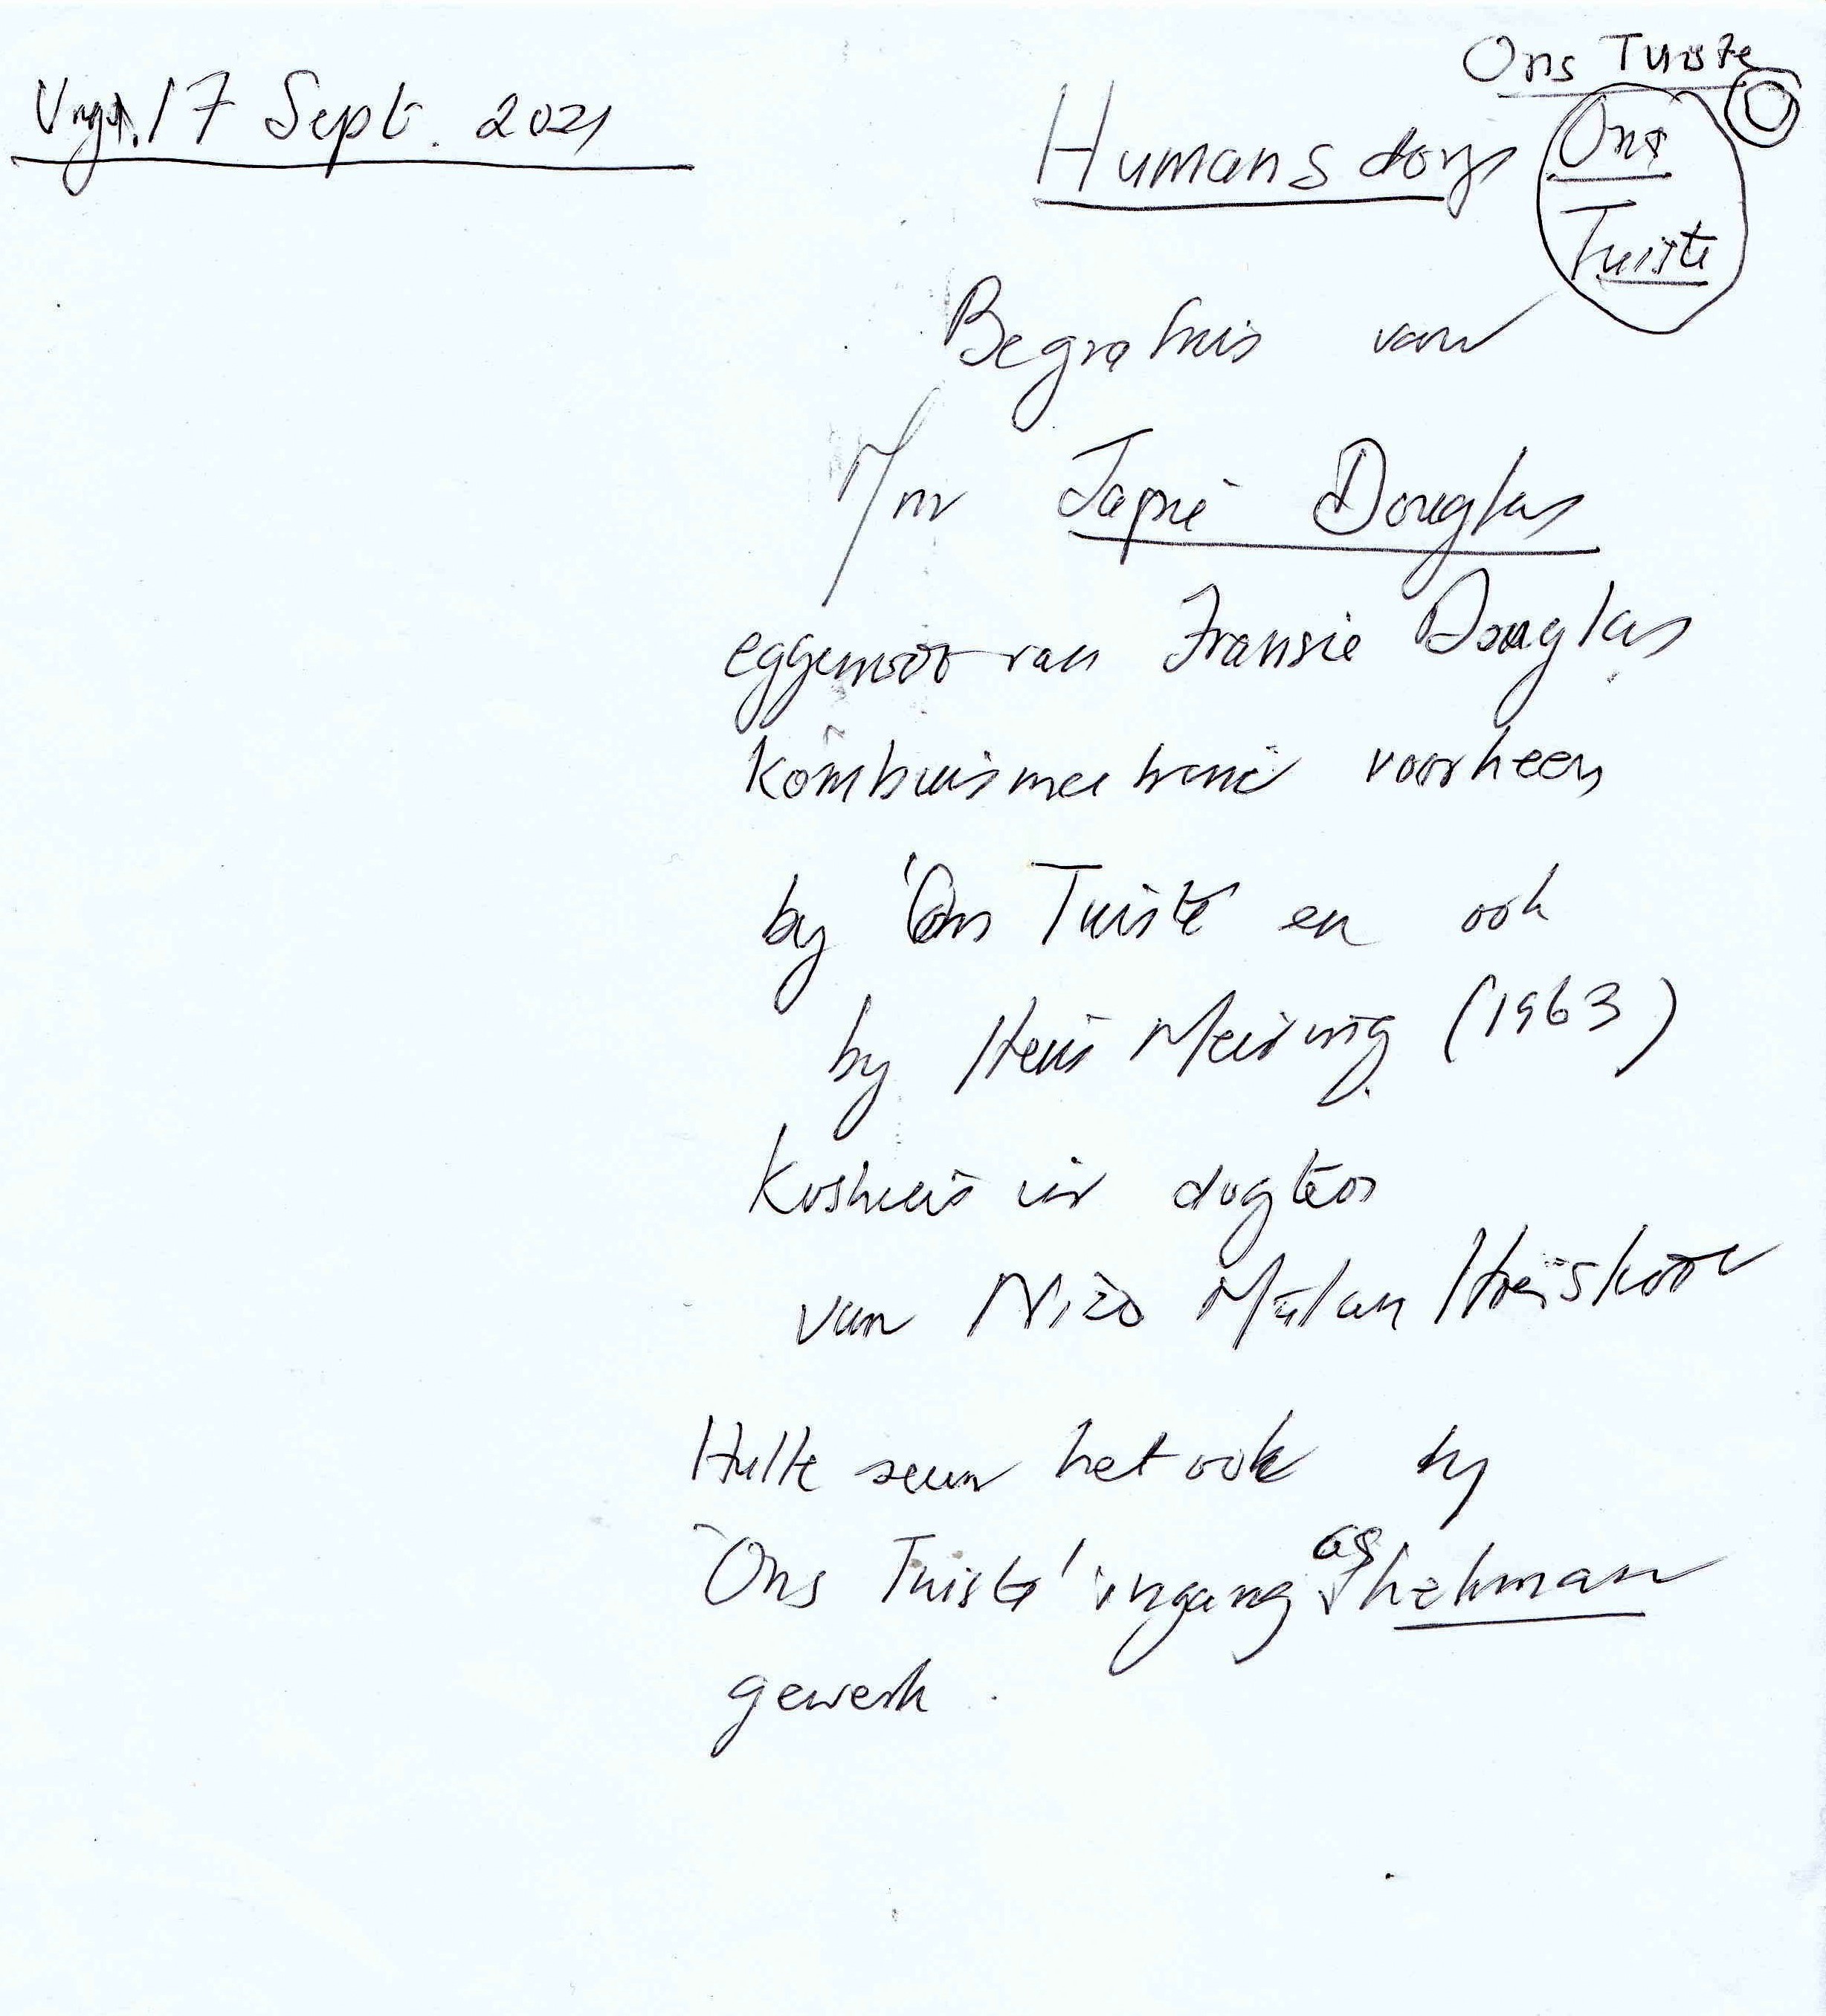 Ons Tuiste
Vryd. 17 Sept. 2021
Humansdorp Ons
Tuiste
Begrafnis van
Mnr Japie Douglas
eggenoot van Fransie Douglas
Kombuismeetronē voorheen
by 'Ons Tuiste en ook
by Huis Meiring (1963)
Koshuis vir dogters
van Nico Malan Hoërskool
Hulle seun het ook by
'Ons Tuiste' ingang as hekman
gewerk.